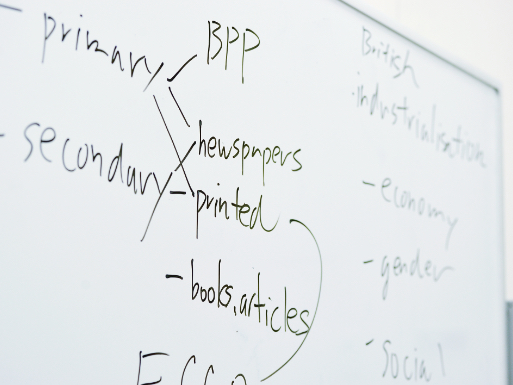 - primary
BPP
newspapers
- secondary
- printed
- books, articles
British
industrialisation
- economy
- gender
- Social